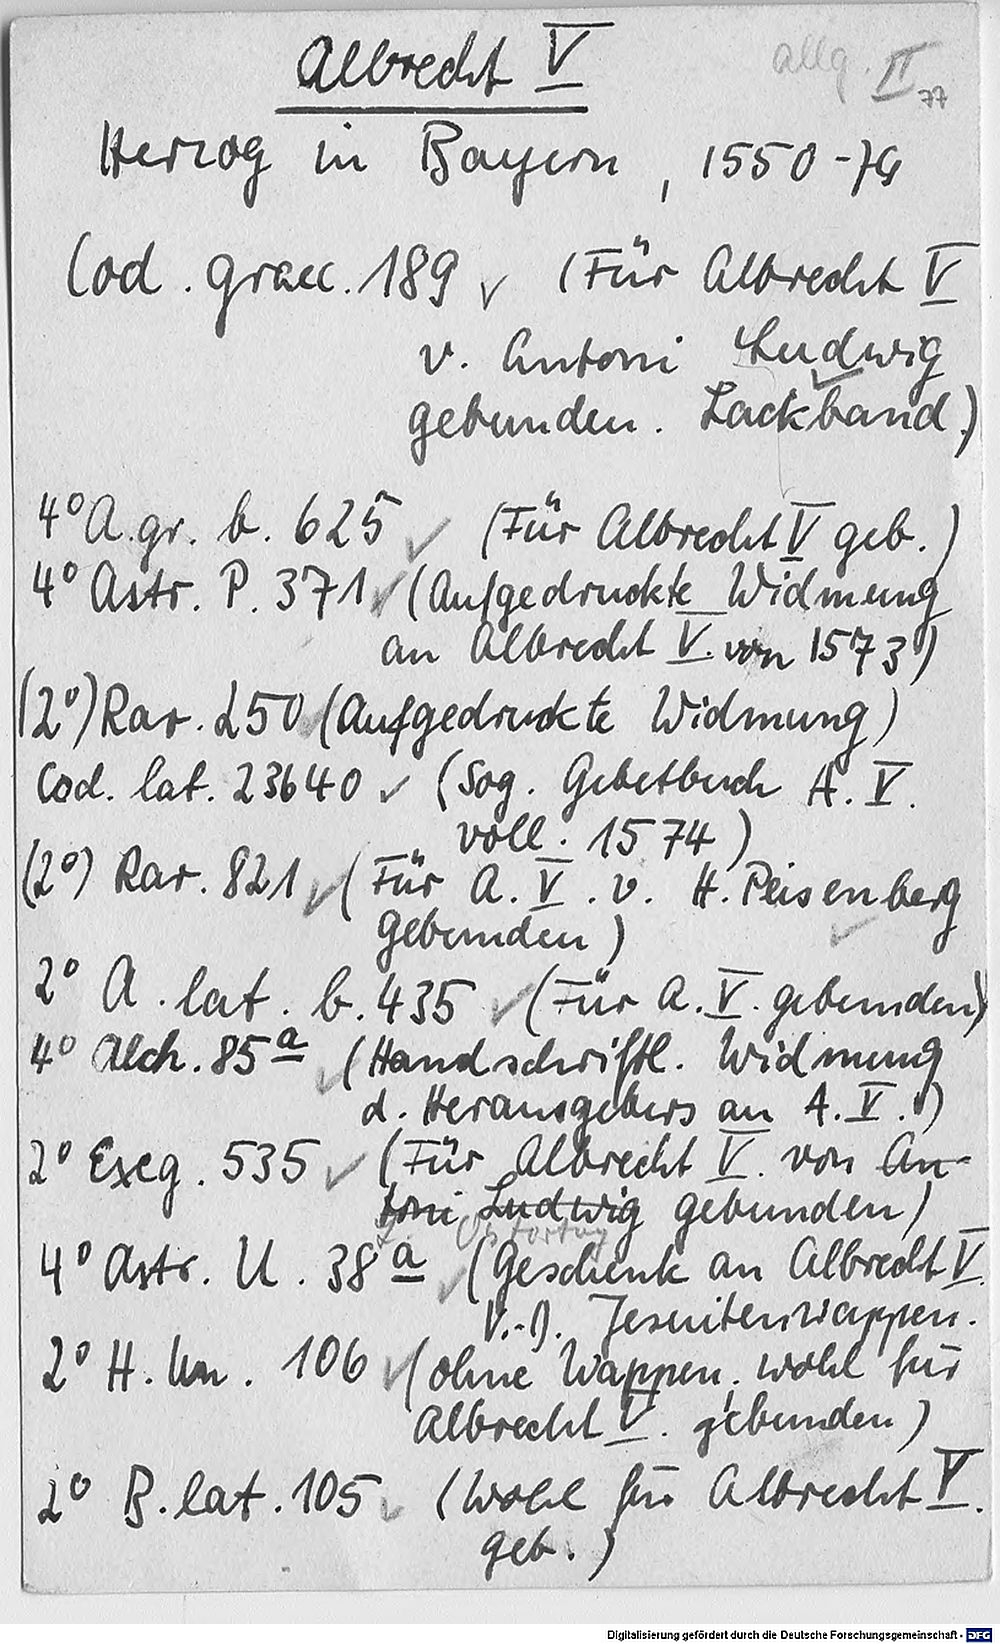 Albrecht V
allg. II
77
Herzog in Bayern, 1550-79
Cod. graec. 189 ✓ (Für Albrecht V
v. Antoni Ludwig
gebunden. Lackband.)
4° A. gr. b. 625 ✓ (Für Albrecht V geb.)
4° Astr. P. 371 ✓ (Aufgedruckte Widmung
an Albrecht V. von 1573)
(2°) Rar. 250 (Aufgedruckte Widmung)
Cod. lat. 23640 ✓ (Sog. Gebetbuch A. V.
voll. 1574)
(2°) Rar. 821 ✓ (Für A. V. v. H. Peisenberg
gebunden)
2° A. lat. b. 435 ✓ (Für A. V. gebunden)
4° Alch. 85a ✓ (Handschriftl. Widmung
d. Herausgebers an A. V.)
2° Exeg. 535 ✓ (Für Albrecht V. von An-
toni Ludwig gebunden)
4° Astr. U. 38a ✓ (Geschenk an Albrecht V.
Jesuitenwappen.
2° H. un. 106 ✓ (ohne Wappen, wohl für
Albrecht V. gebunden)
2° B. lat. 105 ✓ (wohl für Albrecht V.
geb.)
Digitalisierung gefördert durch die Deutsche Forschungsgemeinschaft - DFG